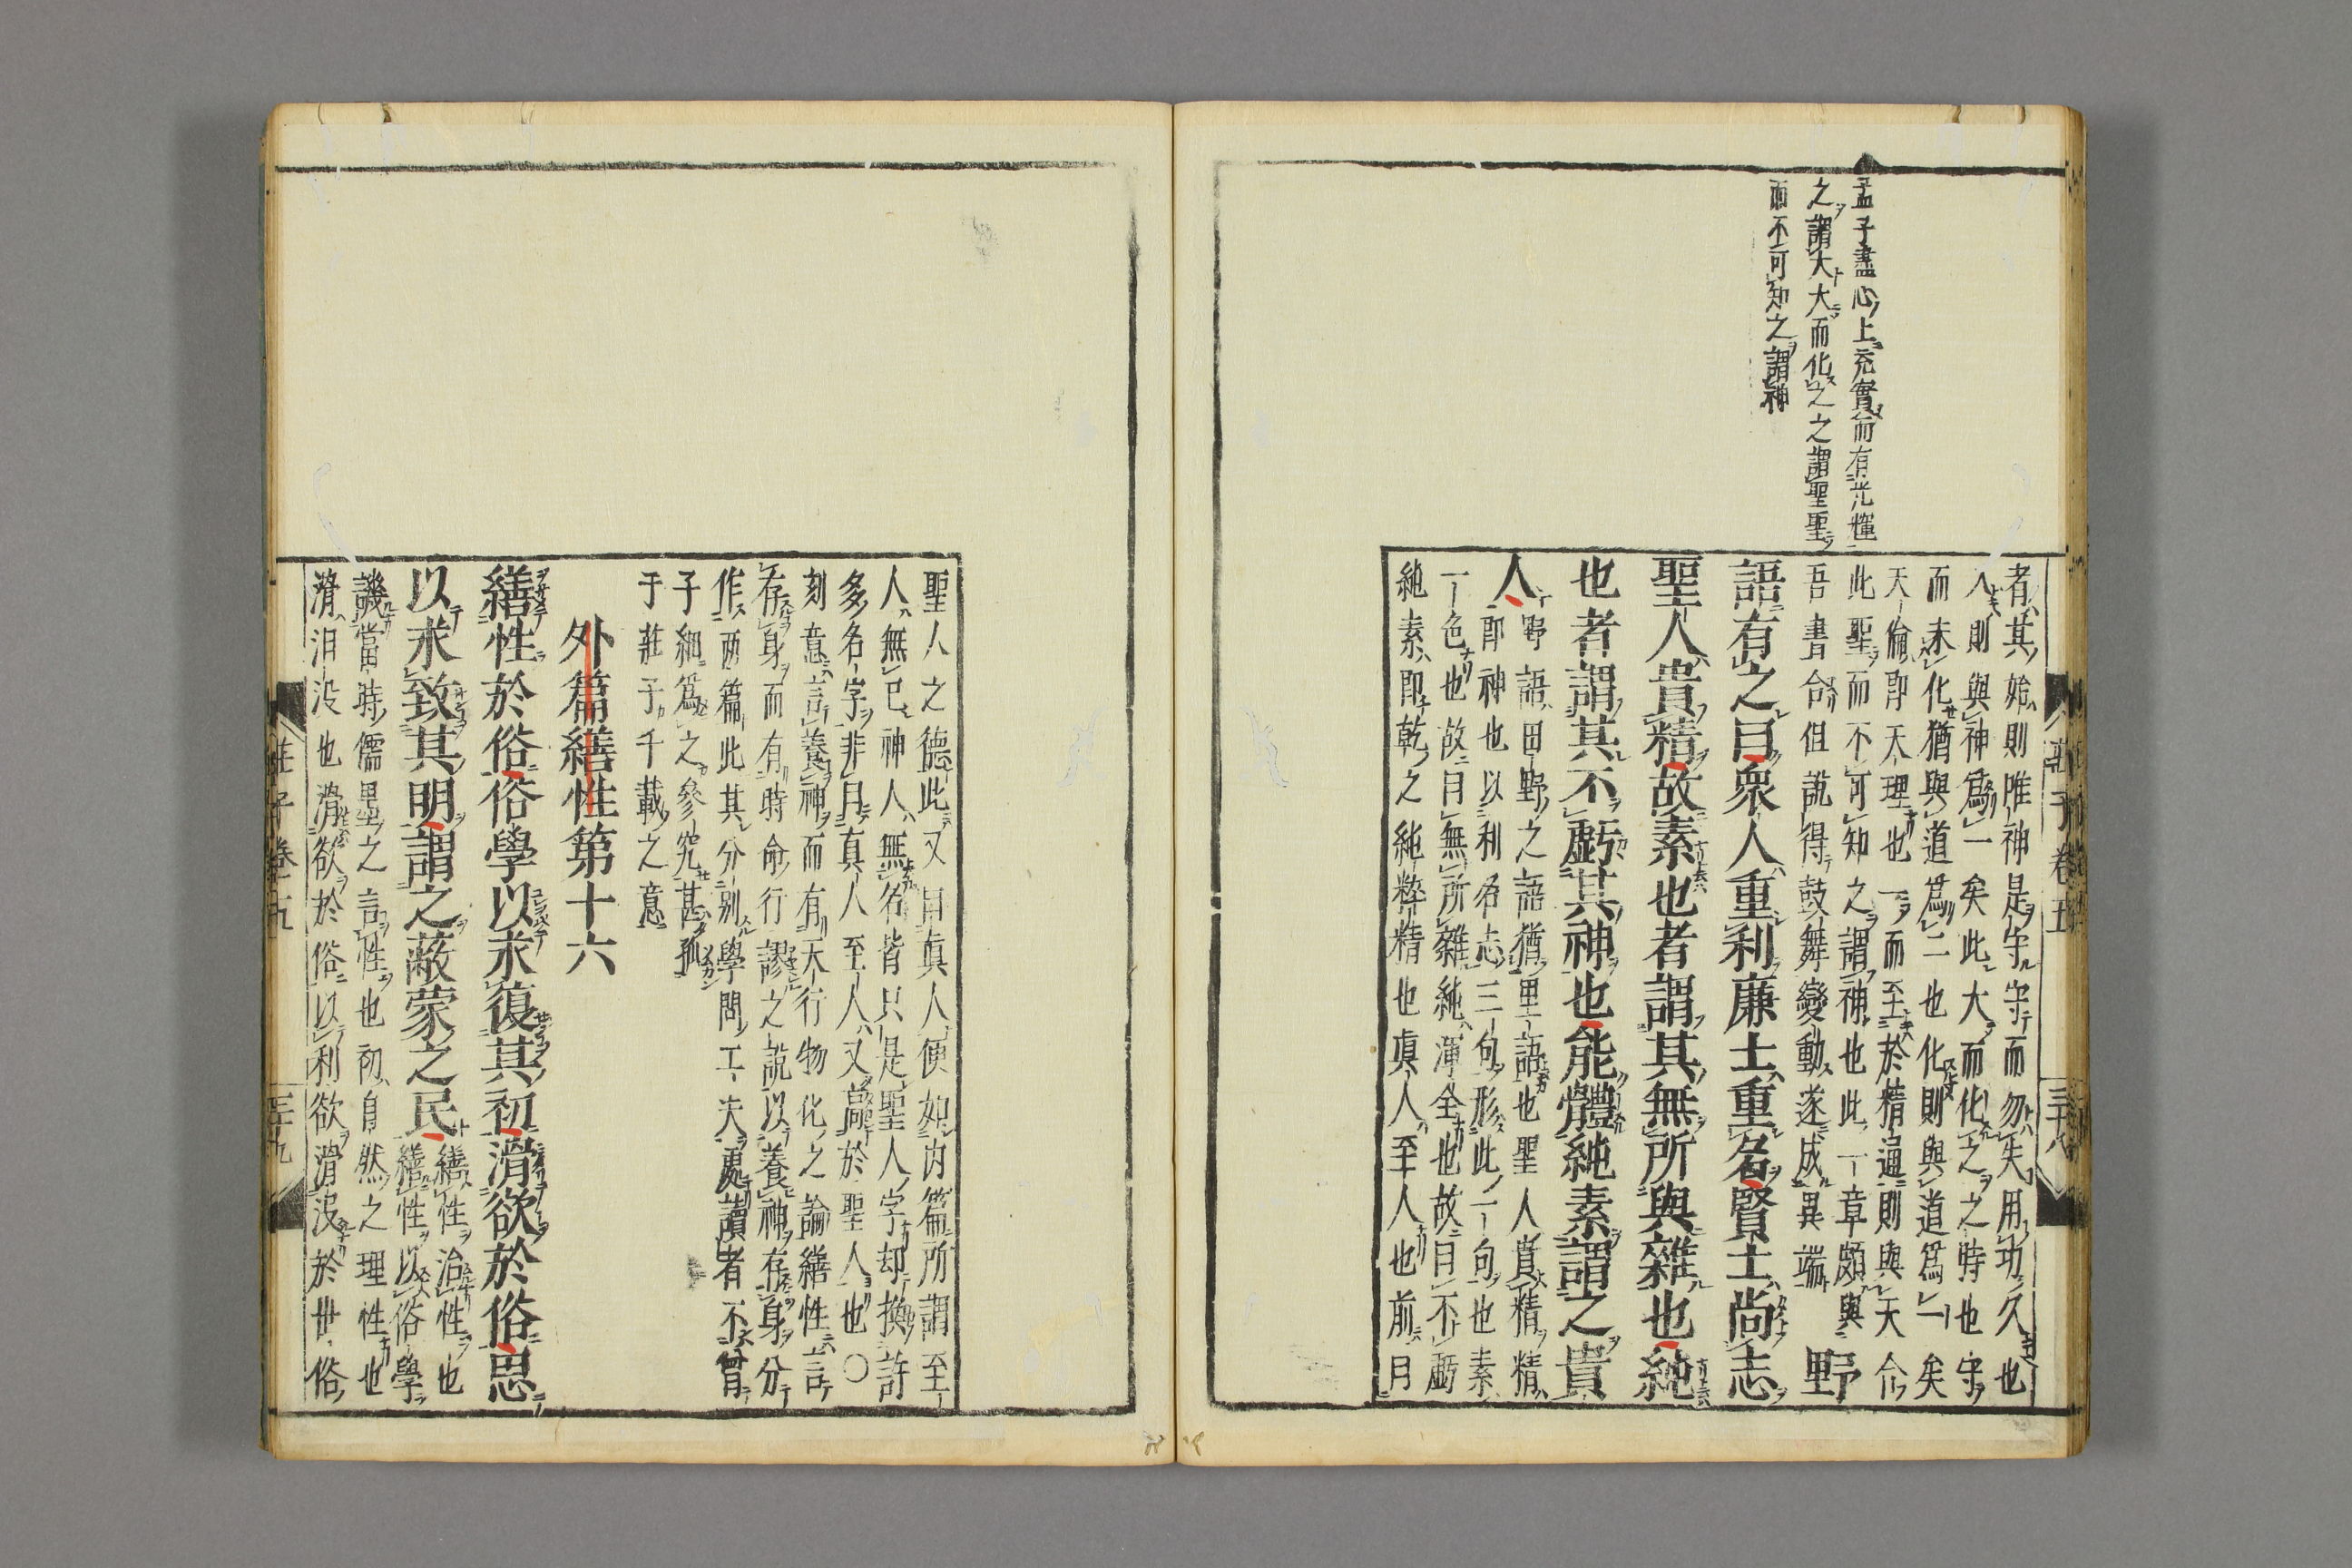 孟子盡心上充實而有光輝
之謂大大而化之之謂聖聖
而不可知之謂神
者其始則唯神是守守而勿失用功久也
久則與神爲一矣此大而化之之時也守
而未化猶與道爲二也化則與道爲一矣
天倫即天理也一而至於精通則與天合
此聖而不可知之謂神也此一章頗與
吾書合但說得鼓舞變動遂成異端 野
語有之曰衆人重利廉士重名賢士尚志
聖人貴精故素也者謂其無所與雜也純
也者謂其不虧其神也能體純素謂之眞
人 野語田野之語猶里語也聖人貴精精
即神也以利名志三句形此一句也素
一色也故曰無所雜純渾全也故曰不虧
純素即乾之純粹精也眞人至人也前曰
莊子卷五
三十八
聖人之德此又曰眞人便如內篇所謂至
人無已神人無名皆只是聖人字却換許
多名字非曰眞人至人又高於聖人也〇
刻意言養神而有天行物化之論繕性言
存身而有時命行謬之說以養神存身分
作兩篇此其分別學問工夫處讀者不曾
子細爲之參究甚孤
于莊子千載之意
外篇繕性第十六
繕性於俗俗學以求復其初滑欲於俗思
以求致其明謂之蔽蒙之民 繕性治性也
繕性以俗學
譏當時儒墨之言性也初自然之理性也
滑汨没也滑欲於俗以利欲滑没於世俗
莊子卷五
三十九